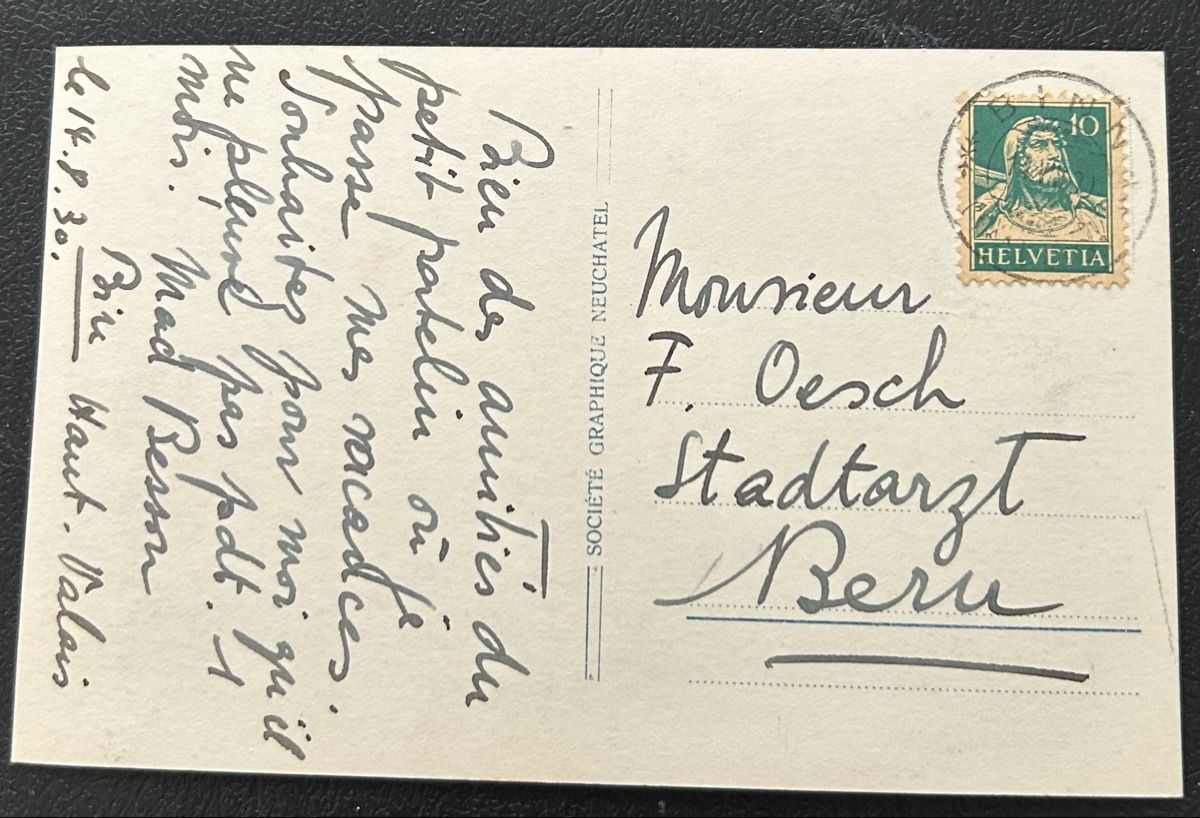 Bien des amitiés du
petit patelin où je
passe mes vacances.
Souhaitez pour moi qu'il
ne pleuve pas pdt. 1
mois. Mad Besson
Binn Haut. Valais
le 14.8.30.
SOCIÉTÉ GRAPHIQUE NEUCHATEL
BINN
10
HELVETIA
Monsieur
F. Oesch
Stadtarzt
Bern